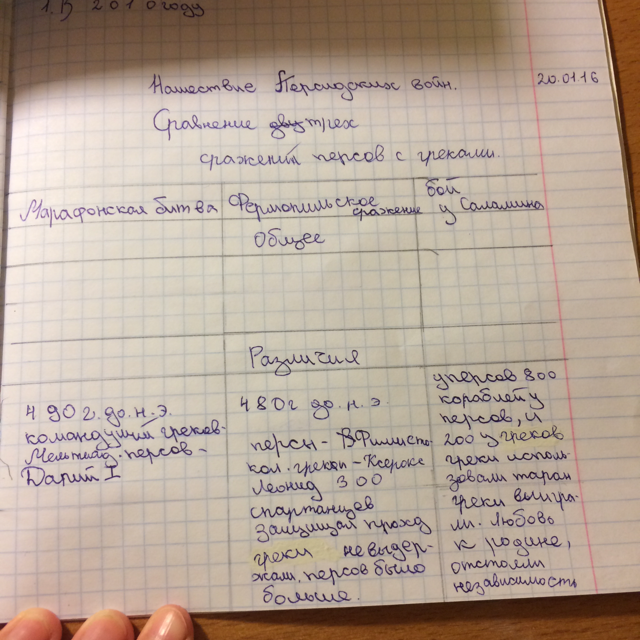 1. В 2010 году
Нашествие Персидских войн.
20.01.16
Сравнение двух трех
сражений персов с греками.
Марафонская битва
Фермопильское
сражение
бой
у Саламина
Общее
Различия
490 г. до. н. э.
командущий греков-
персов-
Дарий I
480г до. н. э
персы-
Ксеркс
Леонид 300
спартанцев
защищал проход
греки невыдер-
жали, персов было
больше.
уперсов 800
кораблей у
персов, и
200 у греков
греки исполь-
зовали таран
греки выигра-
ли. Любовь
к родине,
отстояли
независимость